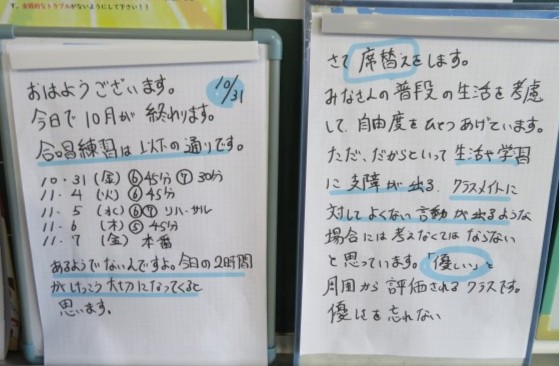 す。金銭的なトラブルがないようにして下さい！！
おはようございます。
10/31
今日で10月が終わります。
合唱練習は以下の通りです。
10・31(金)⑥45分⑦30分
11・4(火)⑥45分
11・5(水)⑥⑦リハーサル
11・6(木)⑤45分
11・7(金)本番
あるようでないんですよ。今日の2時間
がけっこう大切になってくると
思います。
さて席替えをします。
みなさんの普段の生活を考慮
して、自由度をひとつあげています。
ただ、だからといって生活や学習
に支障が出る、クラスメイトに
対してよくない言動が出るような
場合には考えなくてはならない
と思っています。「優しい」と
周囲から評価されるクラスです。
優しさを忘れない